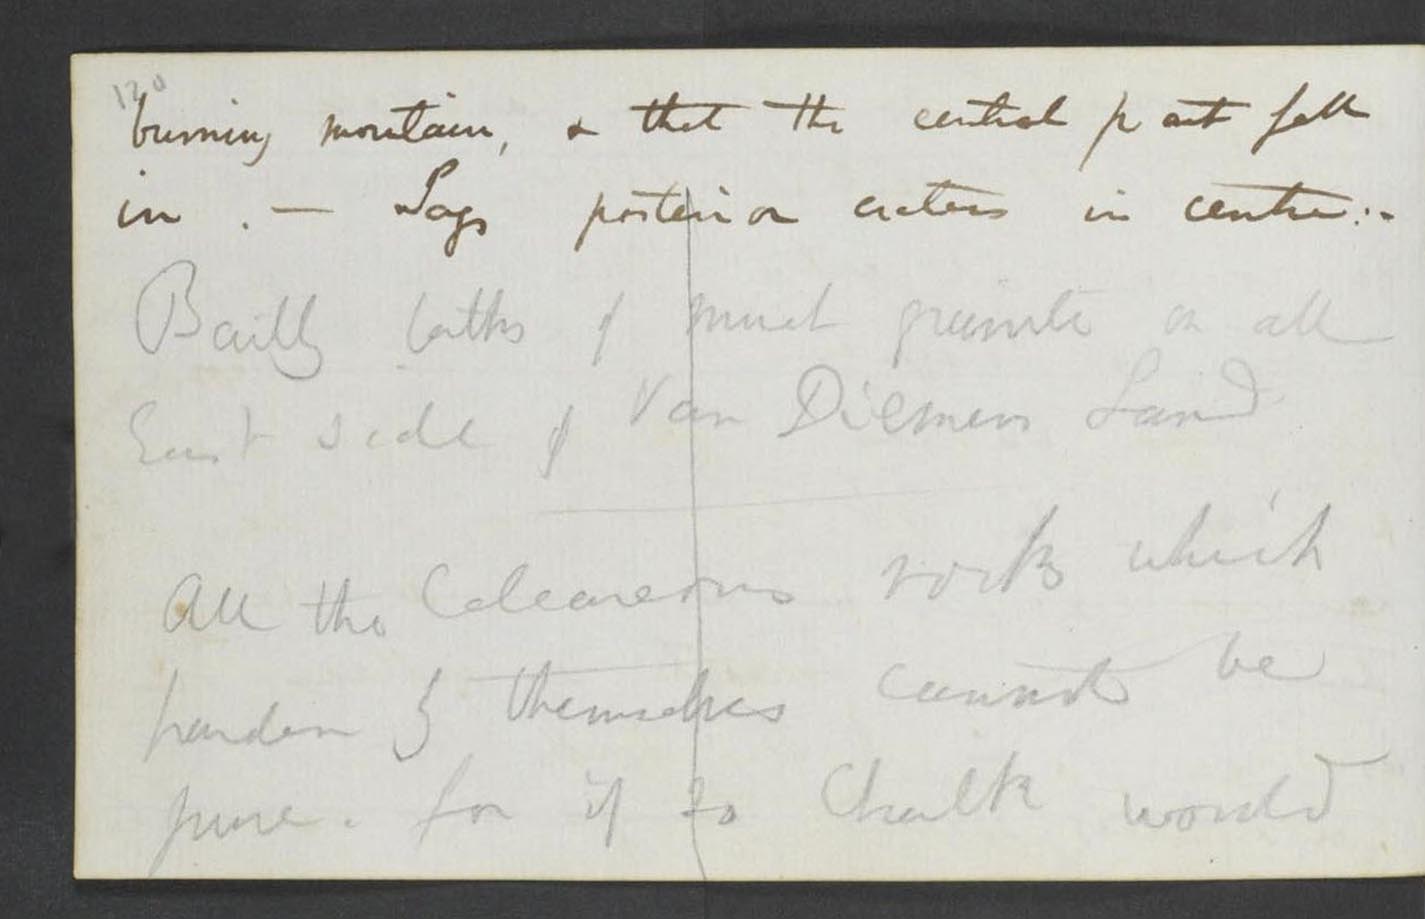 120
burning mountain, & that the central part fell
in. — Says posterior craters in centre.–
Bailly talks of much granite on all
East side of Van Diemen's Land
All the Calcareous rocks which
harden by themselves cannot be
pure. for if so Chalk would